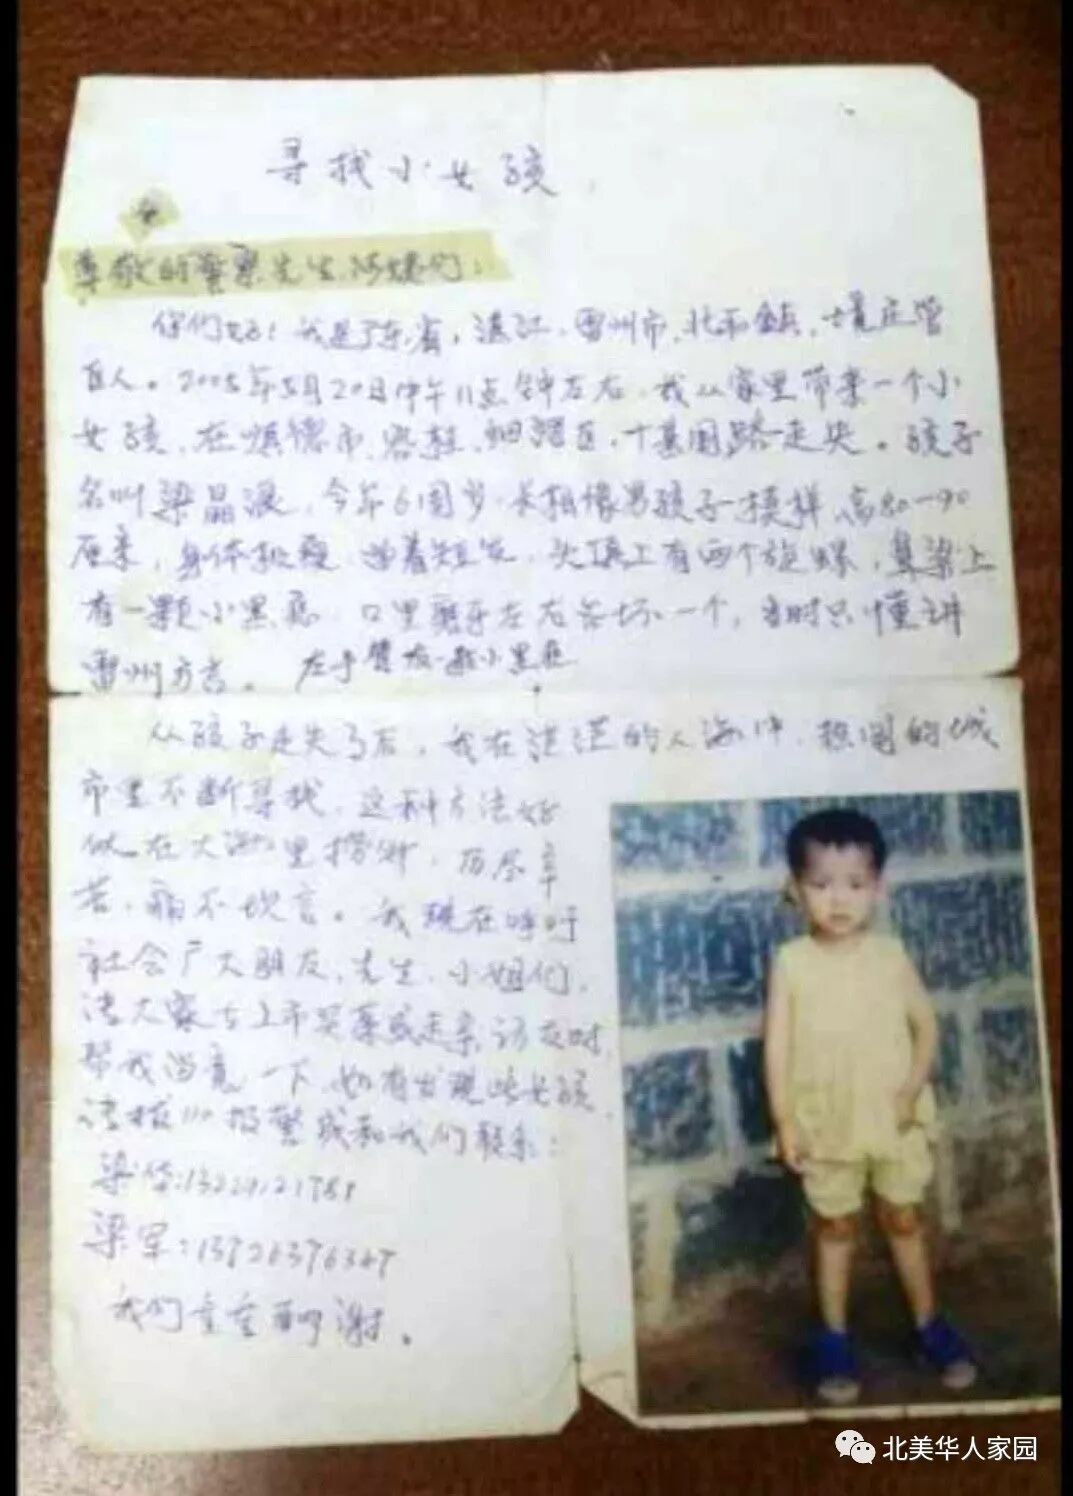 寻找小女孩
尊敬的警察先生
你们好！我是广东省，湛江，雷州市，北和镇，
人。2005年5月20日中午11点钟左右，我从家里带来一个小
女孩，在顺德市，容桂，细滘区，十基围路走失。孩子
名叫梁晶浪，今年6周岁，长相像男孩子一模样，高80-90
厘米，身体较瘦 留着短发，头顶上有两个旋螺，鼻梁上
有一颗小黑痣，口里磨牙左右各坏一个，当时只懂讲
雷州方言。 左手臂有一颗小黑痣
从孩子走失了后，我在茫茫的人海中，热闹的城
市里不断寻找，这种方法好
似在大海里捞针，历尽辛
苦，痛不堪言。我现在呼吁
社会广大朋友，先生，小姐们，
请大家去上市买菜或走亲访友时，
帮我留意一下，如有发现此女孩，
请拨110报警或和我们联系：
梁华：
梁军：13726376347
我们重重酬谢。
北美华人家园